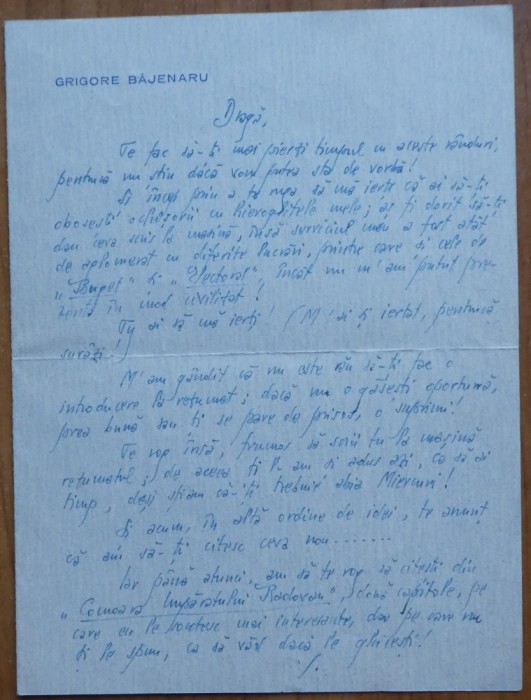 GRIGORE BĂJENARU
Dragă,
Te fac să-ți mai pierzi timpul cu aceste rânduri,
pentrucă nu știu dacă vom putea sta de vorbă!
Și încep prin a te ruga să mă ierți că ai să-ți
obosești ochișorii cu hieroglifele mele; aș fi dorit să-ți
dau ceva scris la mașină, însă serviciul meu a fost atât
de aglomerat cu diferite lucrări, printre care și cele de
"Buget" și "Electoral" încât nu m'am putut pre-
zenta în mod civilizat!
Tu ai să mă ierți! (M'ai și iertat, pentrucă
surâzi!)
M'am gândit că nu este rău să-ți fac o
introducere la rezumat; dacă nu o găsești oportună,
prea bună sau ți se pare de prisos, o suprimi!
Te rog însă, frumos să scrii tu la mașină
rezumatul; de aceea ți l-am și adus azi, ca să ai
timp, deși știam că-ți trebuie abia Miercuri!
Și acum, în altă ordine de idei, te anunț
că am să-ți citesc ceva nou.......
Iar până atunci, am să te rog să citești din
"Comoara Împăratului Radovan", două capitole, pe
care eu le socotesc mai interesante, dar pe care nu
ți le spun, ca să văd dacă le ghicești!